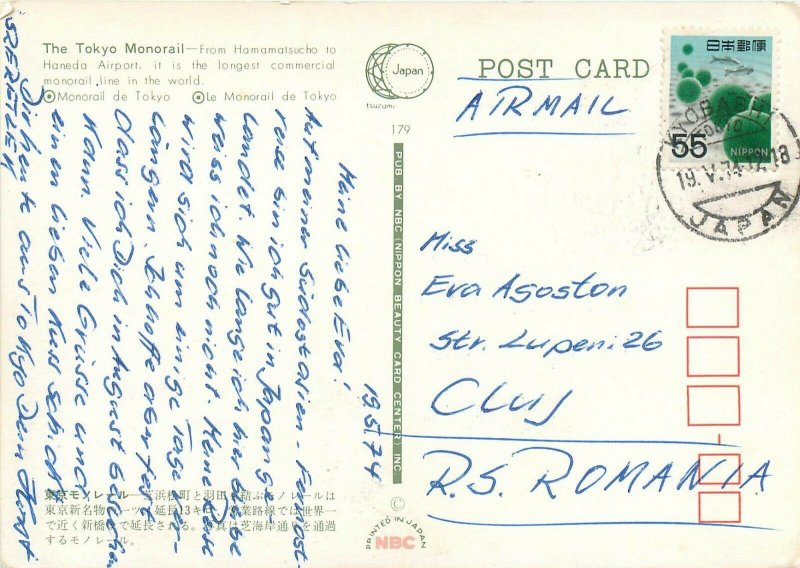 The Tokyo Monorail—From Hamamatsucho to
Haneda Airport. it is the longest commercial
monorail line in the world.
Monorail de Tokyo Le Monorail de Tokyo
Japan
tsuzumi
POST CARD
AIRMAIL
日本郵便
55
NIPPON
19.V.74.17-18
JAPAN
179
PUB. BY NBC (NIPPON BEAUTY CARD CENTER) INC.
19.5.74
Meine liebe Eva!
Auf meiner Südostasien-Fernost-
reise bin ich gut in Japan ge-
landet. Wie lange ich hier bleibe
weiss ich noch nicht. Meine Reise
wird sich um einige Tage ver-
längern. Ich hoffe aber fest
dass ich Dich in August sehen
kann. Viele Grüsse und
ein lieben Kuss schickt
Dir heute aus Tokyo Dein Horst
SZERETLEK
Miss
Eva Agoston
Str. Lupeni 26
CLUJ
R.S. ROMANIA
東京モノレール—芝浜松町と羽田を結ぶモノレールは
東京新名物の一つ。延長13キロ、営業路線では世界一
で近く新橋まで延長される。写真は芝海岸通りを通過
するモノレール。
©
PRINTED IN JAPAN
NBC